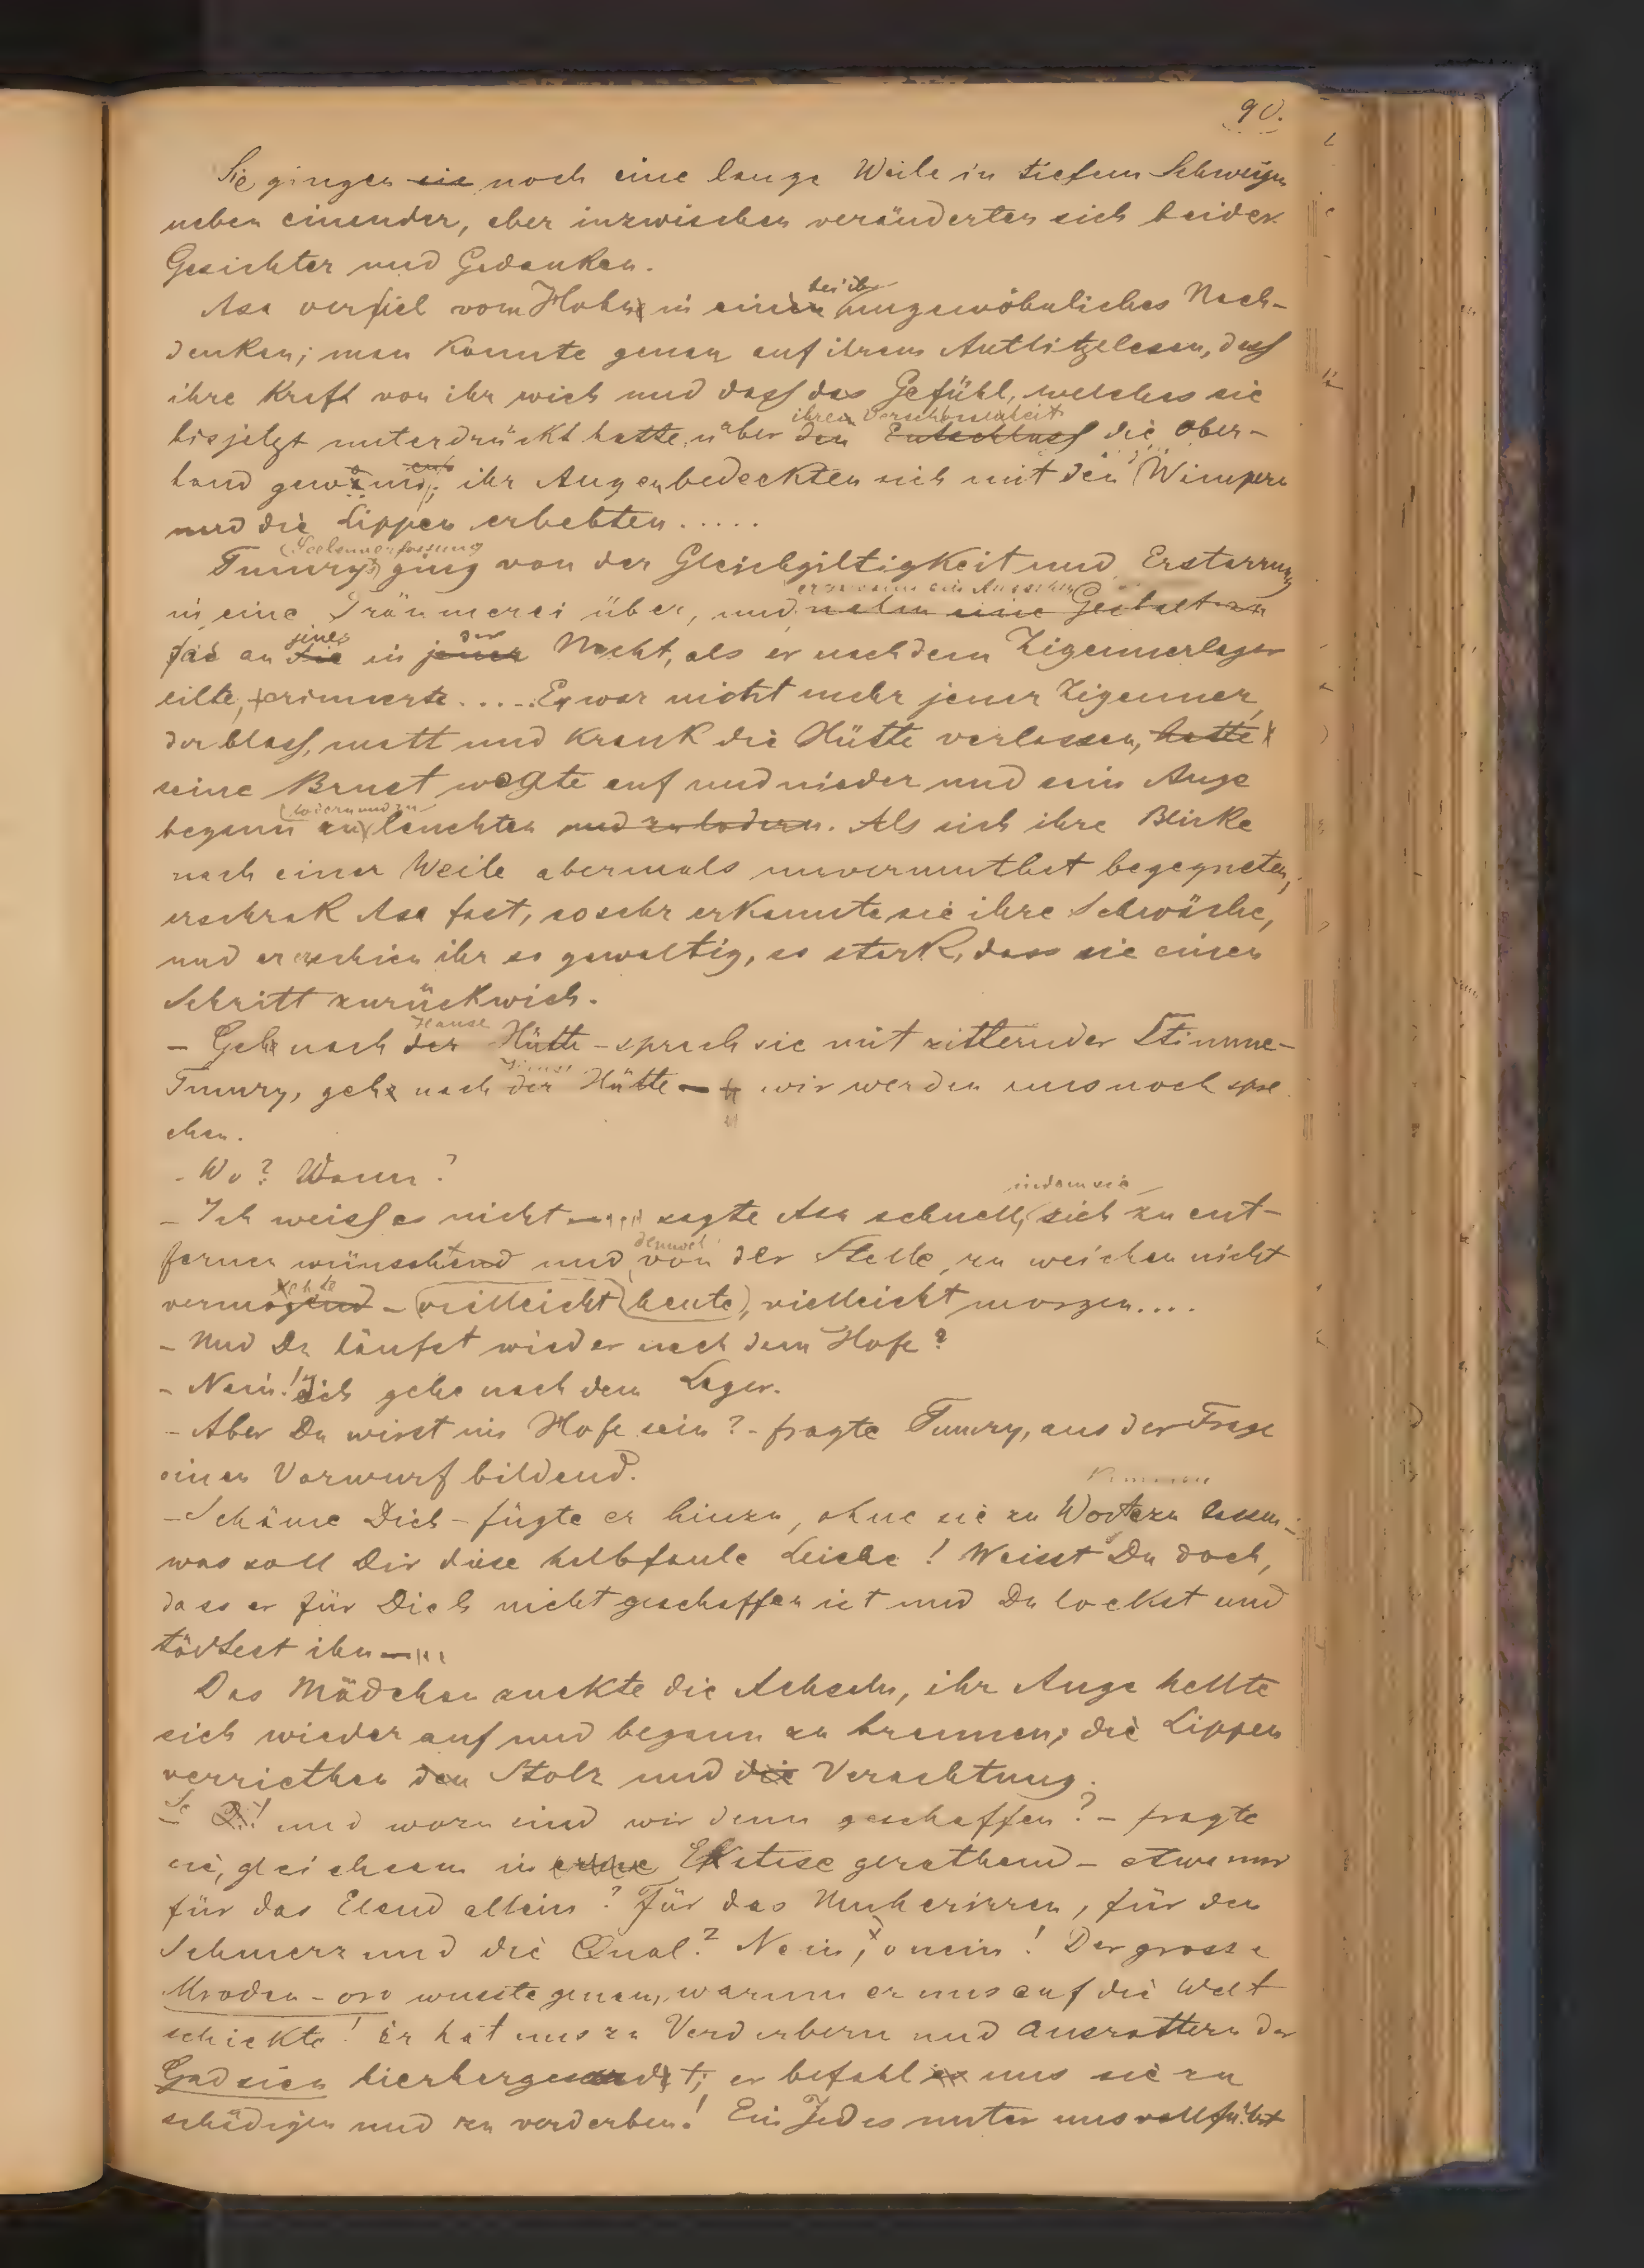 90.
Sie gingen sie noch eine lange Weile in tiefem Schweigen
neben einander, aber inzwischen veränderten sich beider
Gesichter und Gedanken.
bei ihr
Asa verfiel vom Hohn in einen ungewöhnliches Nach-
denken; man konnte genau auf ihrem Antlitze lesen, dass
ihre Kraft von ihr wich und dass das Gefühl, welches sie
ihren Verschlossenheit
bisjetzt unterdrückt hatte, über den Entschluss die Ober-
hand gewann; ihr Augen bedeckten sich mit den Wimpern
und die Lippen erbebten.....
Seelenverfassung
Tumrys ging von der Gleichgiltigkeit und Erstarrung
er gewann ein Aussehen
in eine Träumerei über, und nahm eine Gestalt an
jenes der
das an die in jener Nacht, als er nach dem Zigeunerlager
eilte, erinnerte..... Er war nicht mehr jener Zigeuner,
der blass, matt und krank die Hütte verlassen, hatte
seine Brust wogte auf und nieder und sein Auge
lodern und zu
begann zu leuchten und zu lodern. Als sich ihre Blicke
nach einer Weile abermals unvermuthet begegneten,
erschrak Asa fast, so sehr erkannte sie ihre Schwäche,
und er erschien ihr so gewaltig, so stark, dass sie einen
Schritt zurückwich.
Hause
- Gehe nach der Hütte - sprach sie mit zitternder Stimme -
Tumry, gehe nach der Hütte - wir werden uns noch spre
chen.
- Wo? Wann?
indem sie
- Ich weiss es nicht - sagte Asa schnell, sich zu ent-
dennoch
fernen wünschend und von der Stelle zu weichen nicht
vermögend - vielleicht heute, vielleicht morgen....
- Und Du läufst wieder nach dem Hofe?
- Nein! ich gehe nach dem Lager.
- Aber Du wirst im Hofe sein? - fragte Tumry, aus der Frage
einen Vorwurf bildend.
kommen
- Schäme Dich - fügte er hinzu, ohne sie zu Worte zu lassen -
was soll Dir diese halbfaule Leiche! Weisst Du doch,
dass er für Dich nicht geschaffen ist und Du lockst und
tödtest ihn -...
Das Mädchen zuckte die Achseln, ihr Auge hellte
sich wieder auf und begann zu brennen; die Lippen
verriethen den Stolz und die Verachtung.
- O! und wozu sind wir denn geschaffen? - fragte
sie, gleichsam in eine Ekstase gerathend - etwa nur
für das Elend allein? Für das Umherirren, für den
Schmerz und die Qual? Nein, o nein! Der grosse
Mroden-oro wusste genau, warum er uns auf die Welt
schickte! Er hat uns zu Verderbern und Ausrottern der
Gadsien hierhergesandt; er befahl es uns sie zu
schädigen und zu verderben! Ein Jedes unter uns vollführt